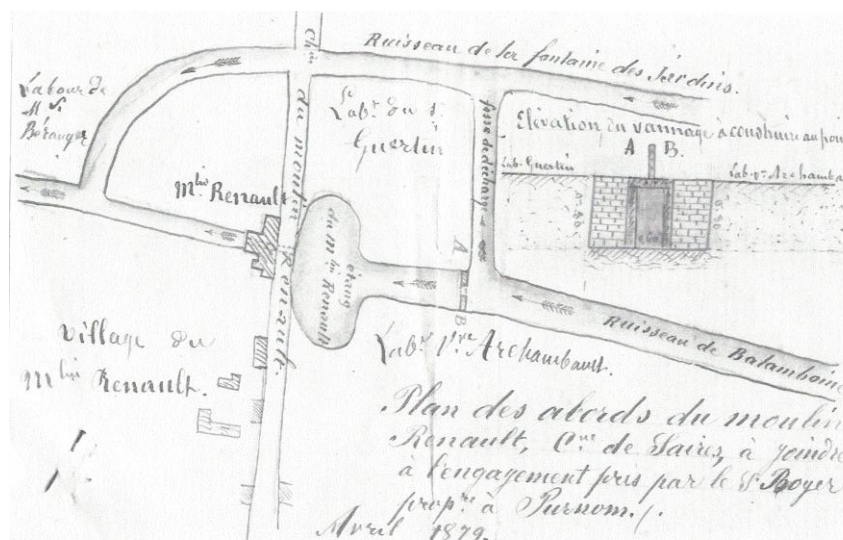 Ruisseau de la fontaine des Jardins.
Chin du moulin Renault.
Labour de
Mr
Béranger
Labr du s.
Guertin
fossé de décharge
Elévation du vannage à construire au poin
A B.
Lab. Guertin
Lab. vve Archamba
Mlin Renault
étang
du Mlin Renault
A
B
Ruisseau de Balamboine
Labr vve Archambault.
Village du
Mlin Renault.
Plan des abords du moulin
Renault, Cne de Saires, à joindre
à l'engagement pris par le Sr Boyer
propre à Purnom./.
Avril 1879.